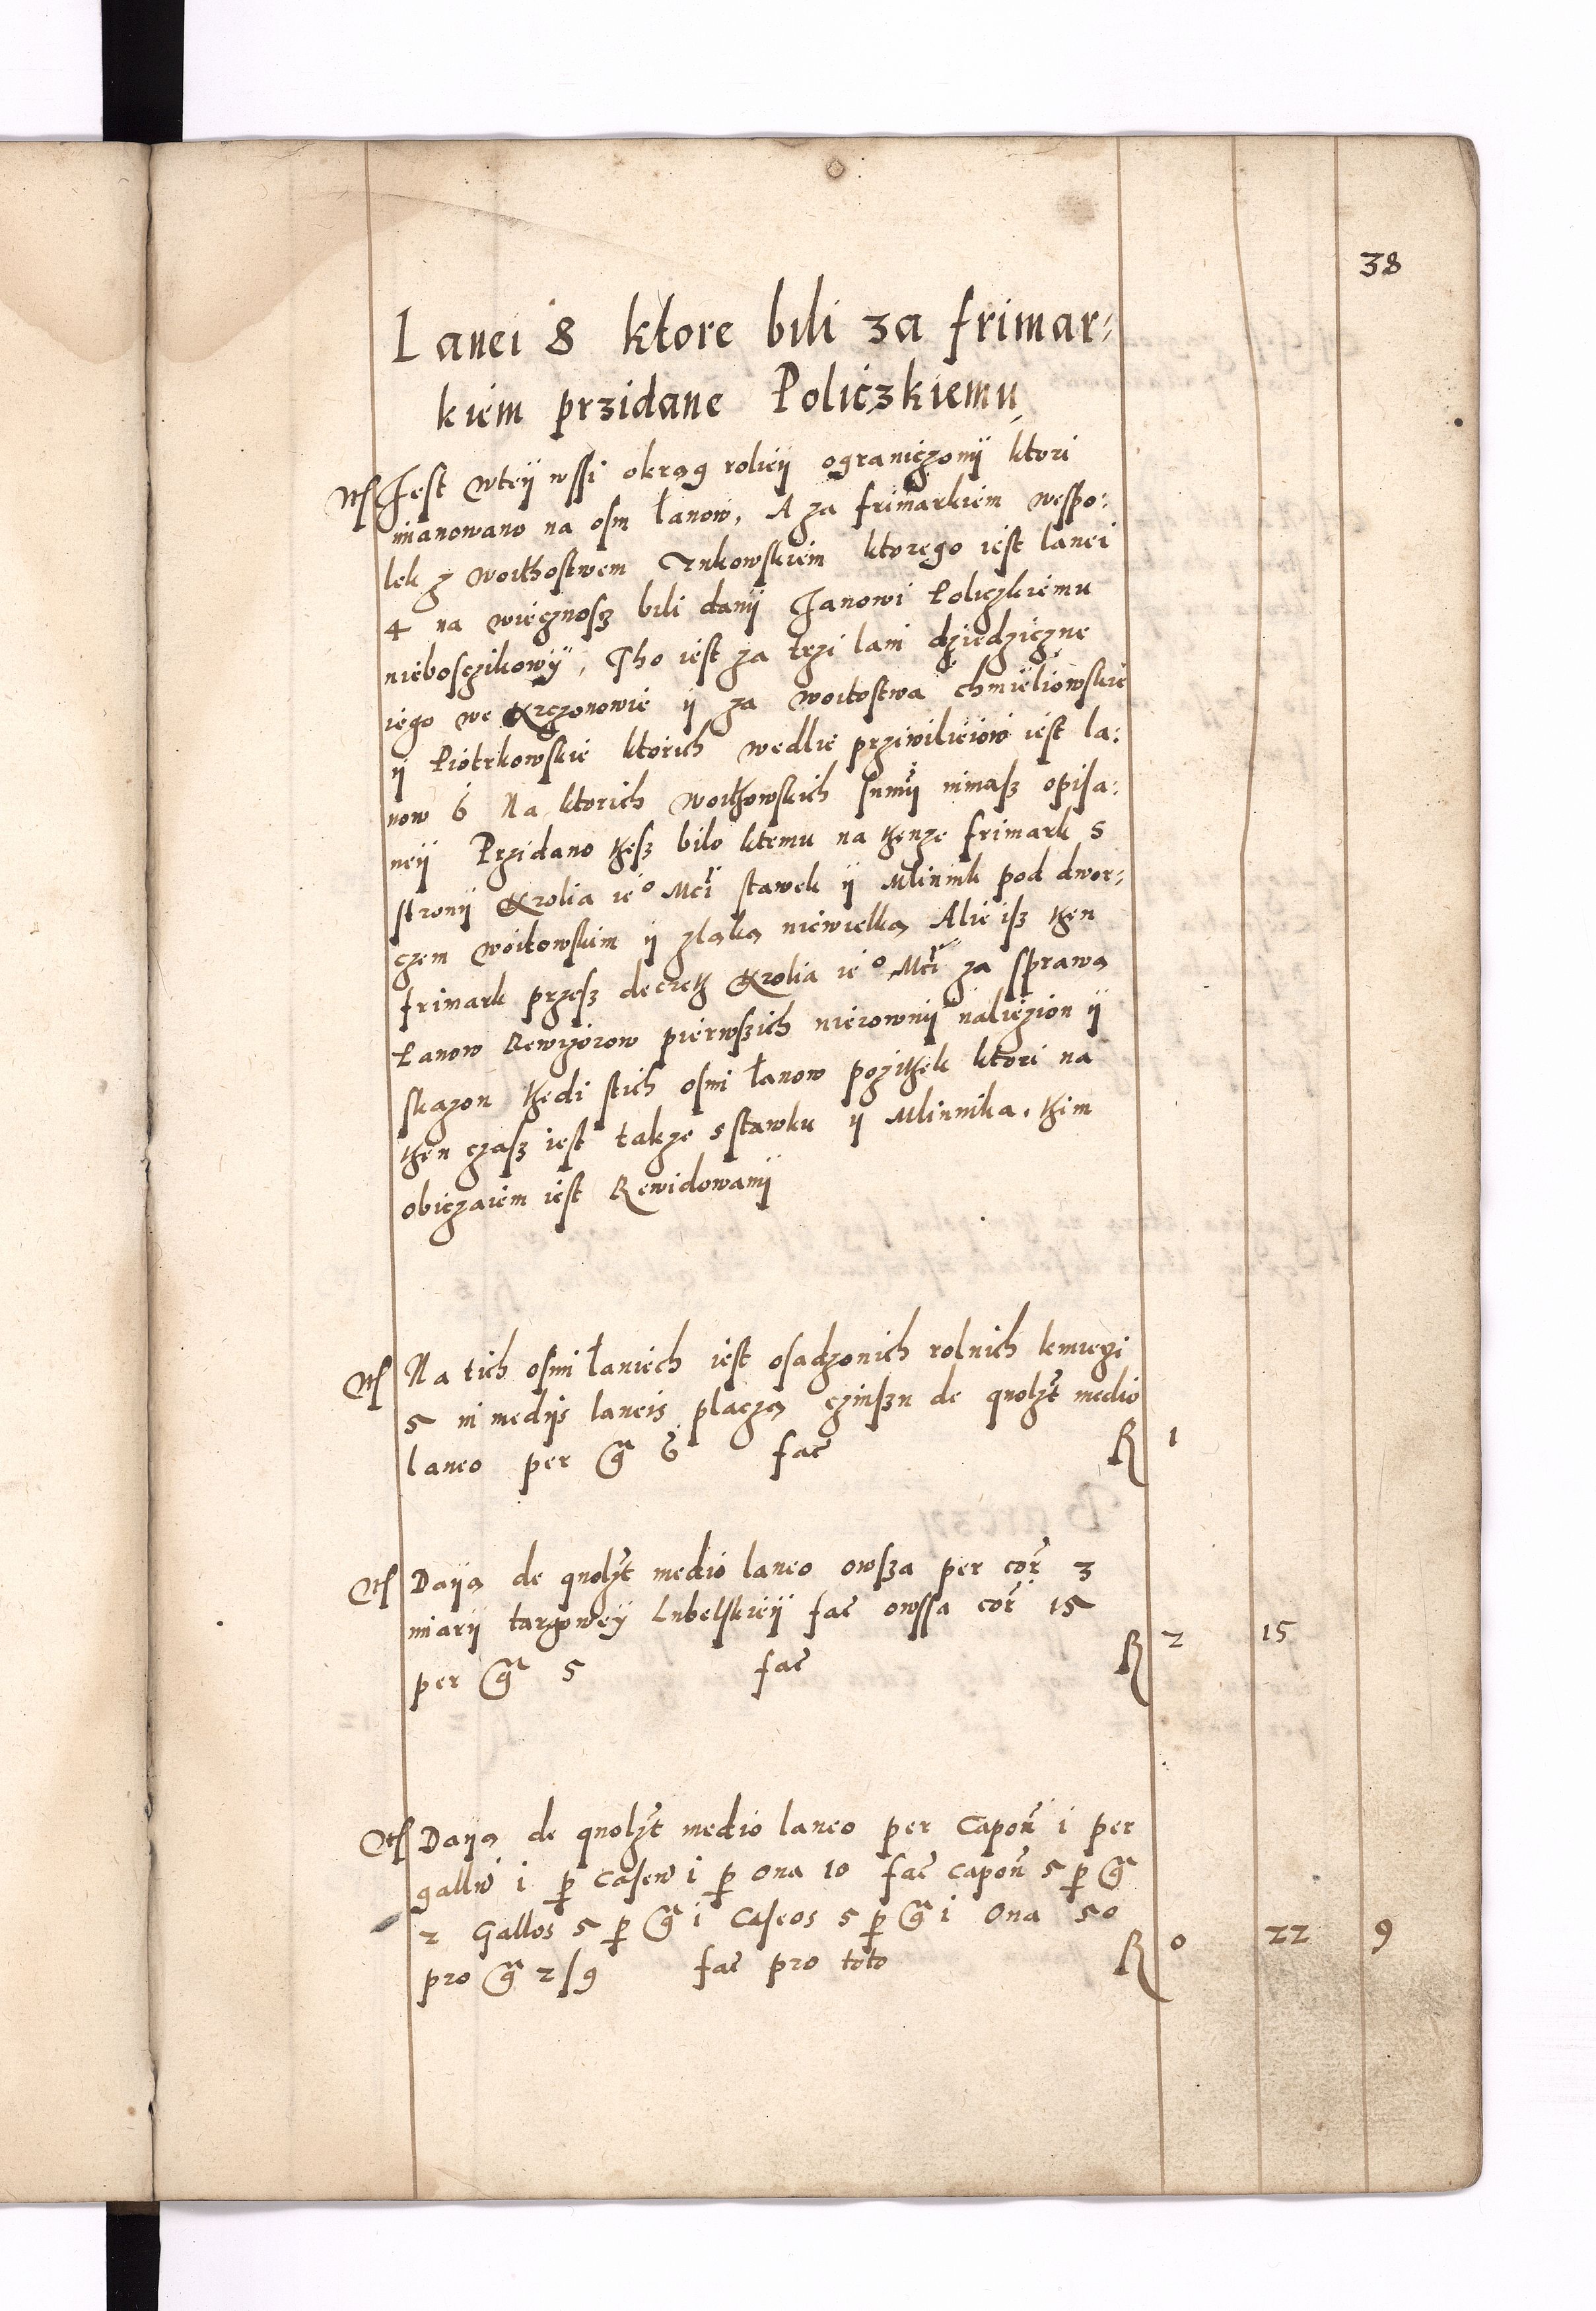 38
Lanei 8 ktore bili za frimar-
kiem przidane Policzkiemu
Jest wteÿ wssi okrąg rolieÿ ograniczonÿ ktori
mianowano na osm łanow, A za frimarkiem wespo-
lek z woithostwem ktorego iest lanei
4 na wiecznosz bili danÿ Janowi Policzkiemu
niebosczikowÿ, Tho iest za trzi lani dziedziczne
iego we Krzczonowie ÿ za woitostwa chmieliowskie
ÿ Piotrkowskie ktorich wedlie przÿwilieiow iest la-
now 6 Na ktorich woithowskich sumÿ nimasz opisa-
neÿ Przidano thesz bilo ktemu na thenze frimark s
stronÿ Krolia ieo Mci stawek ÿ Mlinnik pod dwor-
czem woitowskim ÿ złąką niewielką Alie isz then
frimark przesz decreth Krolia ieo Mci za sprawą
Panow Rewizorow pierwszich nierownÿ naliezion ÿ
skazon thedi stich osmi łanow pozithek ktori na
then czasz iest takze s stawku ÿ Mlinnika, thim
obiczaiem iest Rewidowanÿ
Na tich osmi łaniech iest osadzonich rolnich kmiezi
5 in medÿs laneis placzą czinszu de quolzt medio
laneo per gr 6 fac R 1
Daÿą de quolzt medio laneo owsza per cor 3
miarÿ targoweÿ Lubelskieÿ fac owssa cor 15
per gr 5 fac R 2 15
Daÿą de quolzt medio laneo per Capon 1 per
gallu 1 p Caseu 1 p Oua 10 fac capon 5 p gr
2 Gallos 5 p gr 1 Caseos 5 p gr 1 Oua 50
pro gr 2/9 fac pro toto R 0 22 9